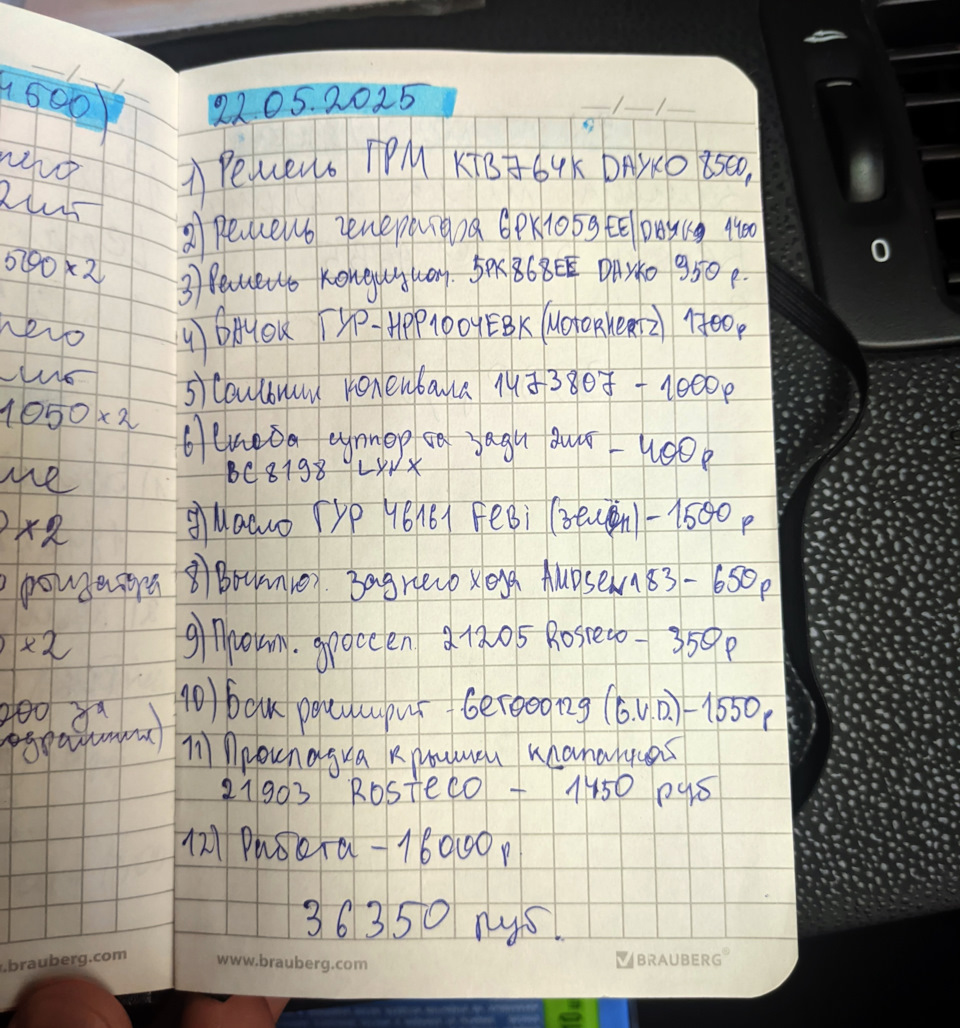 4600)
22.05.2025
1) Ремень ГРМ KTB764K DAYKO 8500,
2) Ремень генератора 6PK1059EE/DAYKO 1400
3) Ремень кондицион. 5PK868EE DAYKO 950 р.
4) БАЧОК ГУР-HPP1004EBK (MOTORHERTZ) 1700р
5) Сальник коленвала 1473807 - 1000р
6) Скоба суппорта задн 2шт - 400р
BC8198 LYNX
7) Масло ГУР 46161 FEBi (зелён) - 1500 р
8) Выключ. заднего хода AMDSEN183 - 650р
9) Прокл. дроссел. 21205 Rosteco - 350р
10) Бак расширит - GET000129 (G.V.D.) - 1550р
11) Прокладка крышки клапанной
21903 ROSTECO - 1450 руб
12) Работа - 16000р.
36350 руб.
него
2шт
500 x 2
него
1050 x 2
x 2
x 2
за
www.brauberg.com
BRAUBERG
.brauberg.com
0